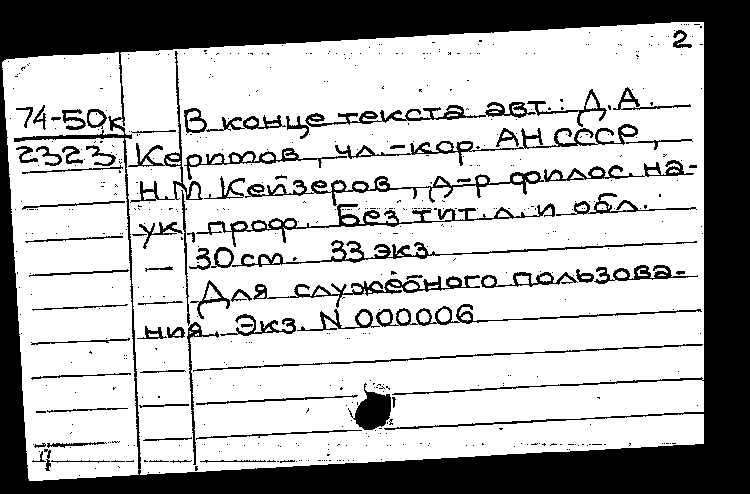 2
74-50к В конце текста авт.: Д.А.
2323 Керимов, чл.-кор. АН СССР,
Н.М. Кейзеров, д-р филос. на-
ук, проф. Без тит. л. и обл.
— 30 cm. 33 экз.
Для служебного пользова-
ния. Экз. N 000006